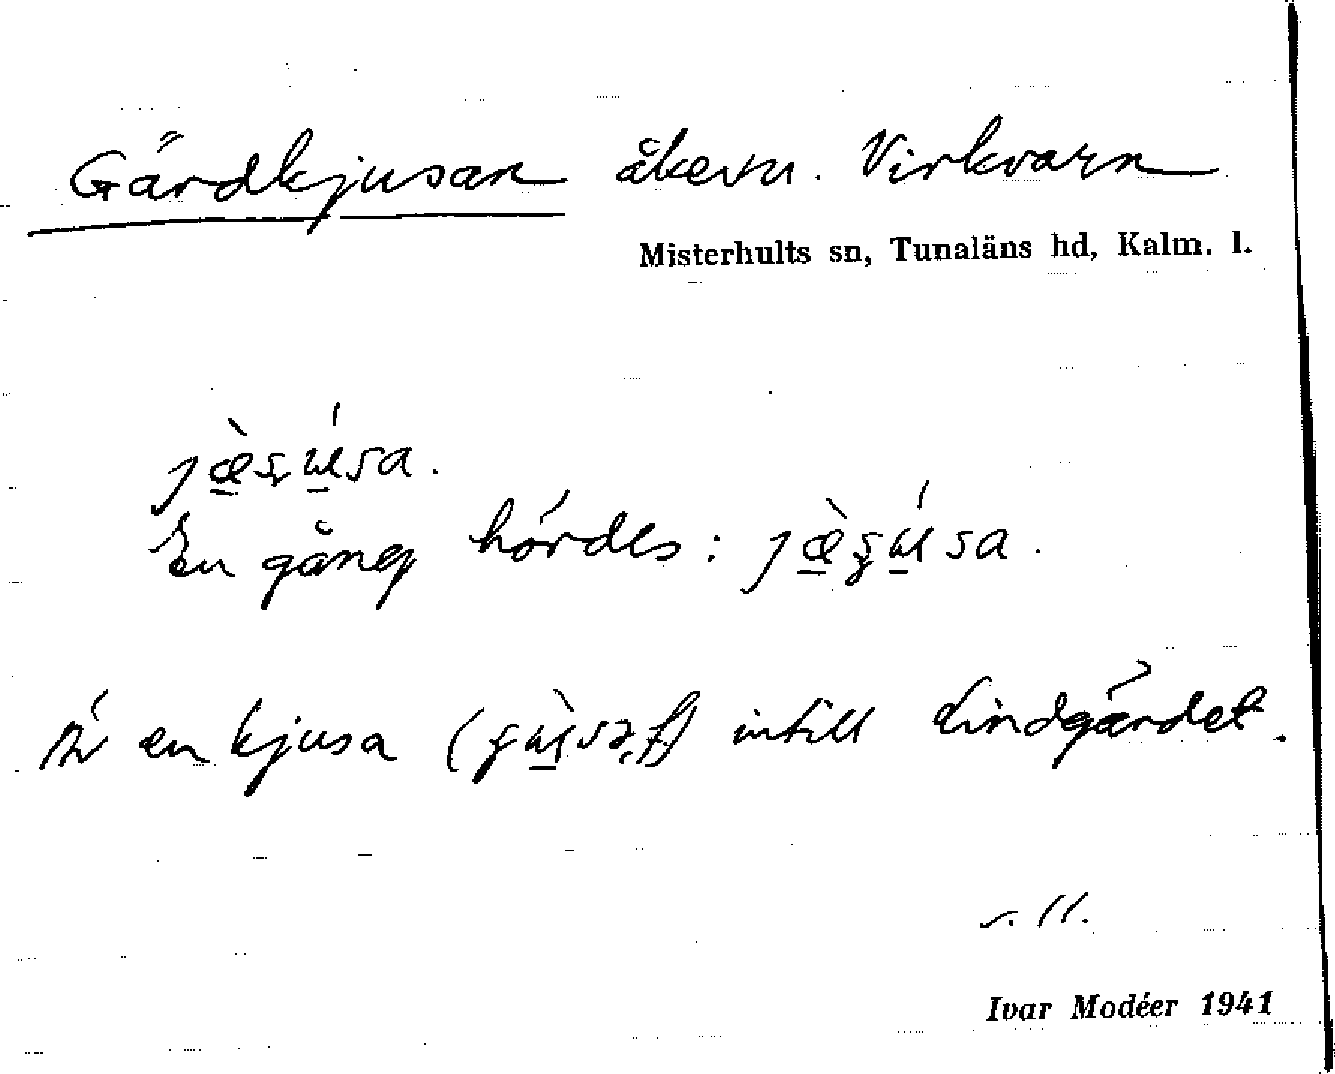 Gärdkjusan åkern. Virkvarn
Misterhults sn, Tunaläns hd, Kalm. l.
En gång hördes:
Är en kjusa ( intill Lindgärdet.
s. 11.
Ivar Modéer 1941